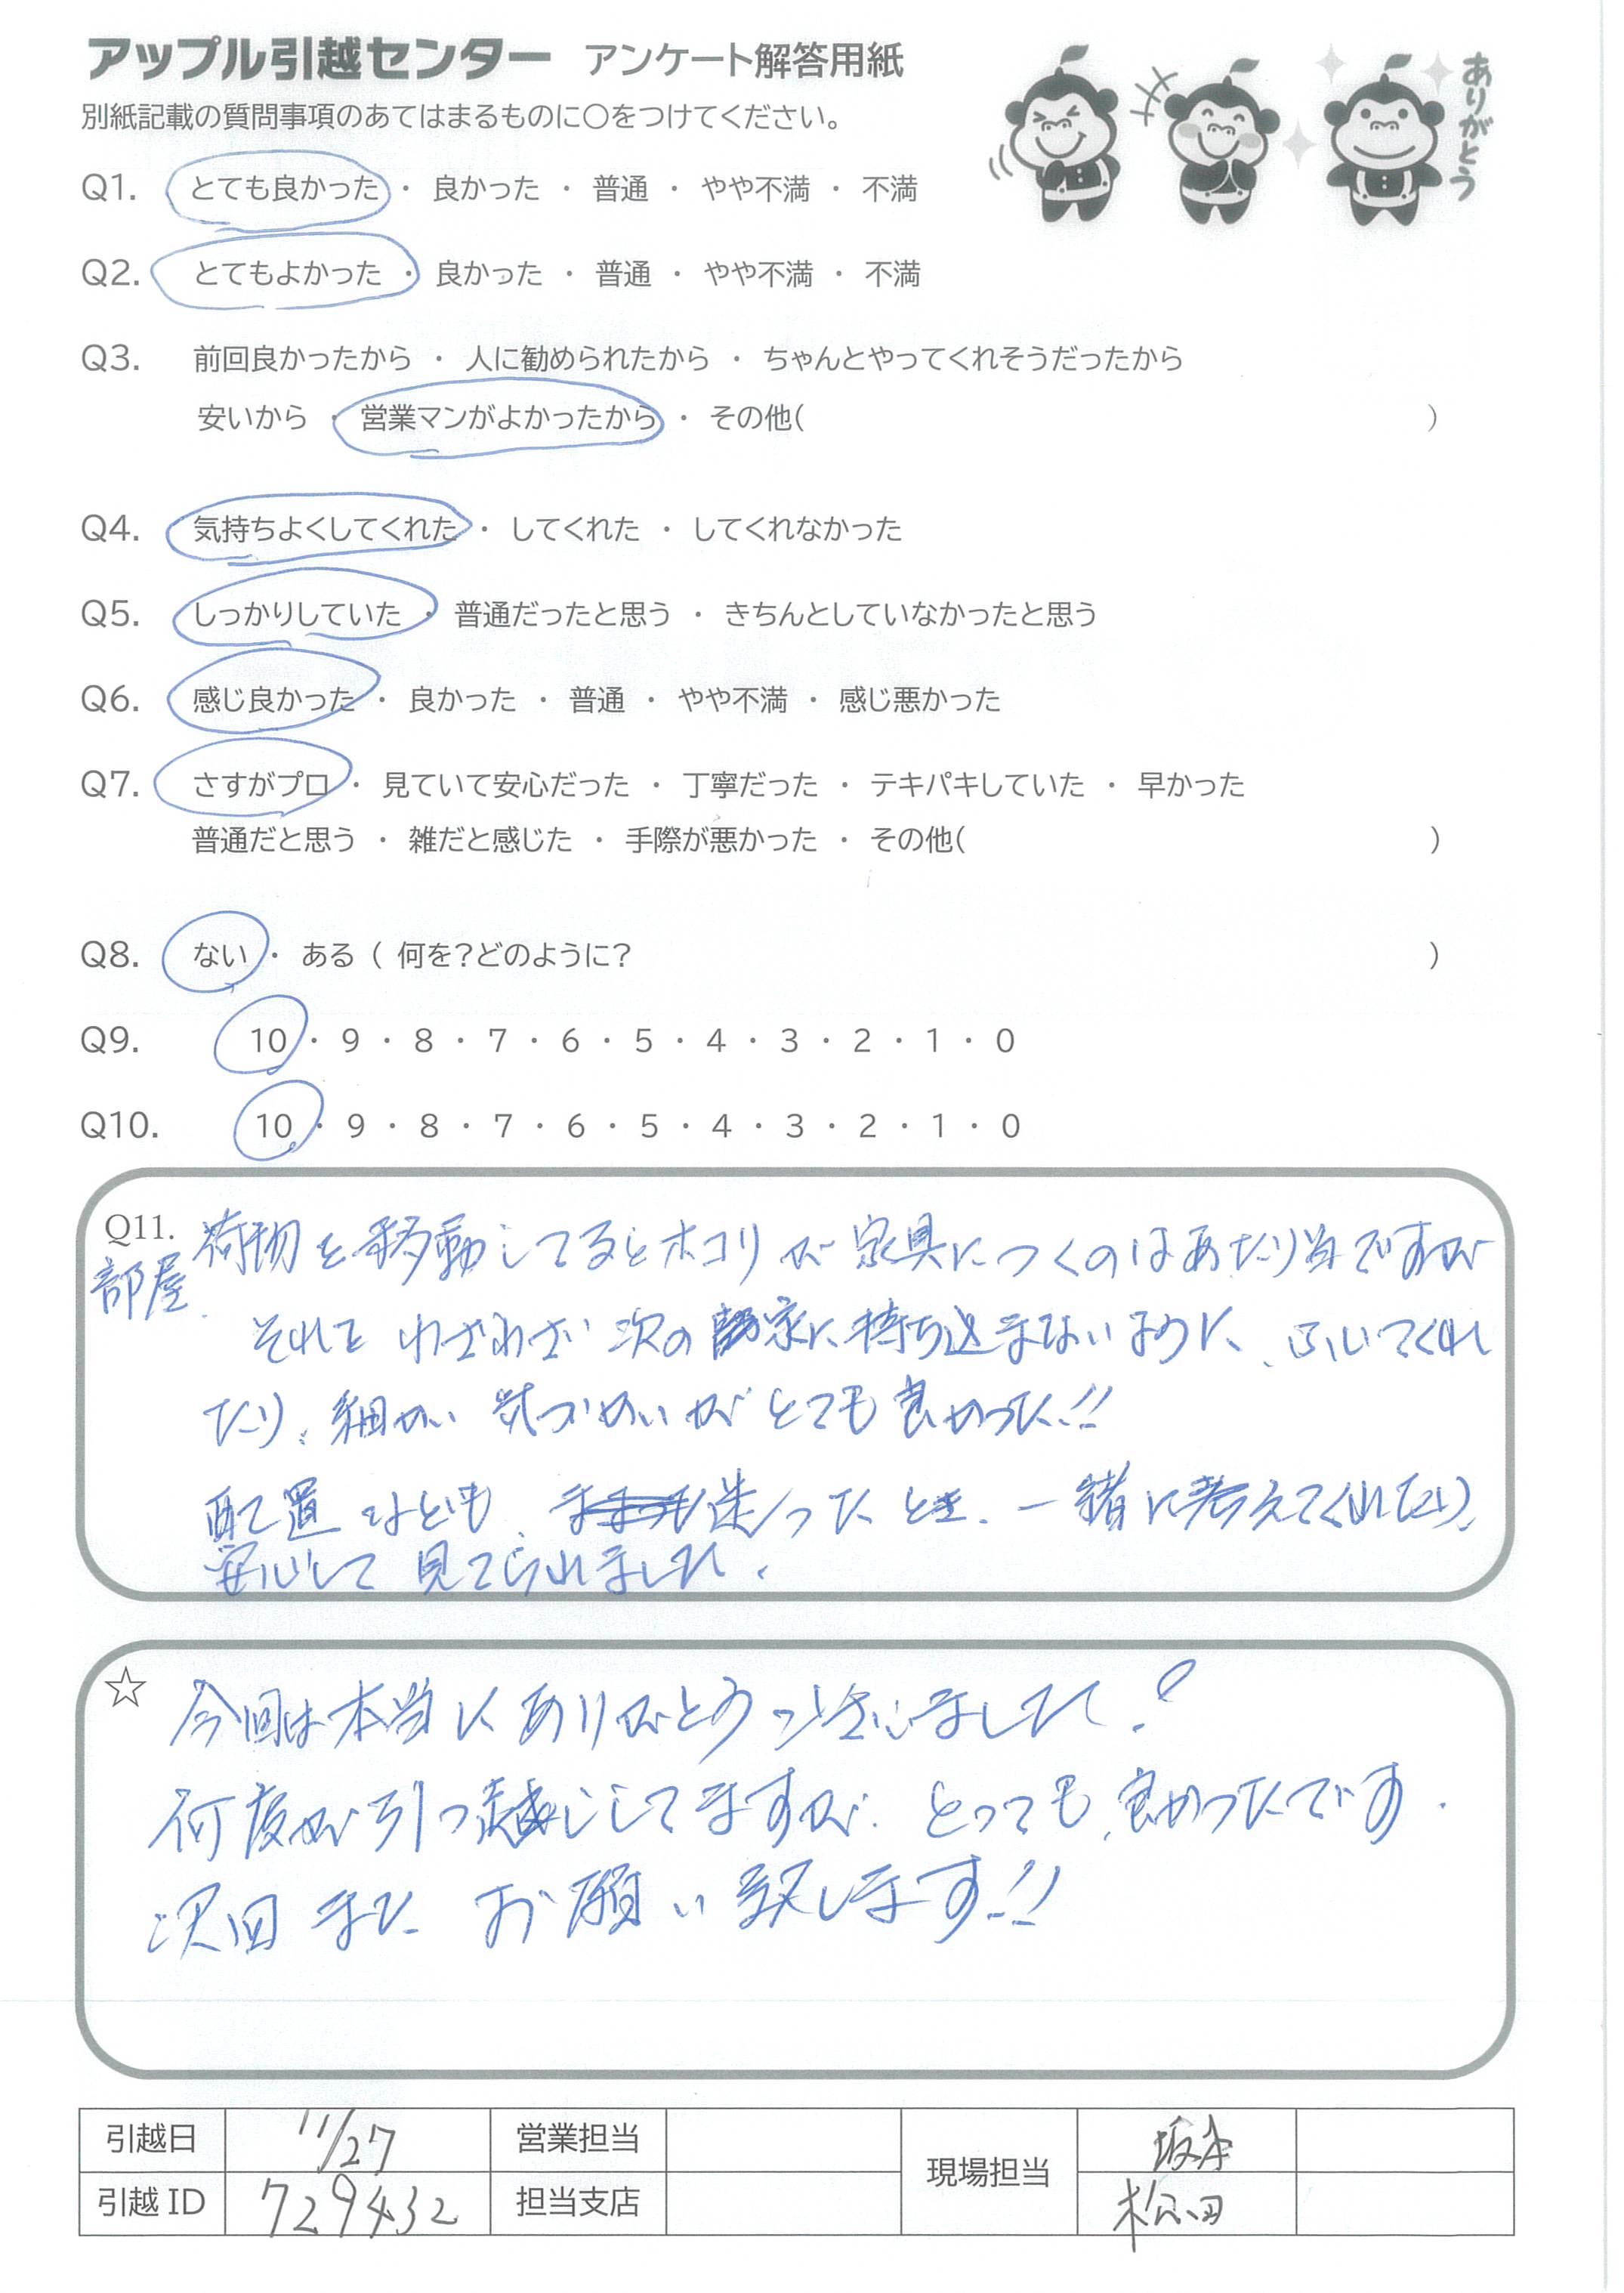 アップル引越センター アンケート解答用紙
ありがとう
別紙記載の質問事項のあてはまるものに○をつけてください。
Q1. とても良かった ・ 良かった ・ 普通 ・ やや不満 ・ 不満
Q2. とてもよかった ・ 良かった ・ 普通 ・ やや不満 ・ 不満
Q3. 前回良かったから ・ 人に勧められたから ・ ちゃんとやってくれそうだったから
安いから ・ 営業マンがよかったから ・ その他( )
Q4. 気持ちよくしてくれた ・ してくれた ・ してくれなかった
Q5. しっかりしていた ・ 普通だったと思う ・ きちんとしていなかったと思う
Q6. 感じ良かった ・ 良かった ・ 普通 ・ やや不満 ・ 感じ悪かった
Q7. さすがプロ ・ 見ていて安心だった ・ 丁寧だった ・ テキパキしていた ・ 早かった
普通だと思う ・ 雑だと感じた ・ 手際が悪かった ・ その他( )
Q8. ない ・ ある ( 何を?どのように? )
Q9. 10 ・ 9 ・ 8 ・ 7 ・ 6 ・ 5 ・ 4 ・ 3 ・ 2 ・ 1 ・ 0
Q10. 10 ・ 9 ・ 8 ・ 7 ・ 6 ・ 5 ・ 4 ・ 3 ・ 2 ・ 1 ・ 0
Q11. 荷物を移動してるとホコリが家具につくのはあたり当ですが
部屋
それをわざわざ次の家に持ち込まないように、ふいてくれ
たり、細かい気づかいがとても良かった!!
配置なども、迷ったとき、一緒に考えてくれたり、
安心して見てられました。
☆ 今回は本当にありがとうございました!
何度か引っ越ししてますが、とっても良かったです.
次回また お願い致します!!
引越日 11/27 営業担当 現場担当 坂本
引越ID 729432 担当支店 松田